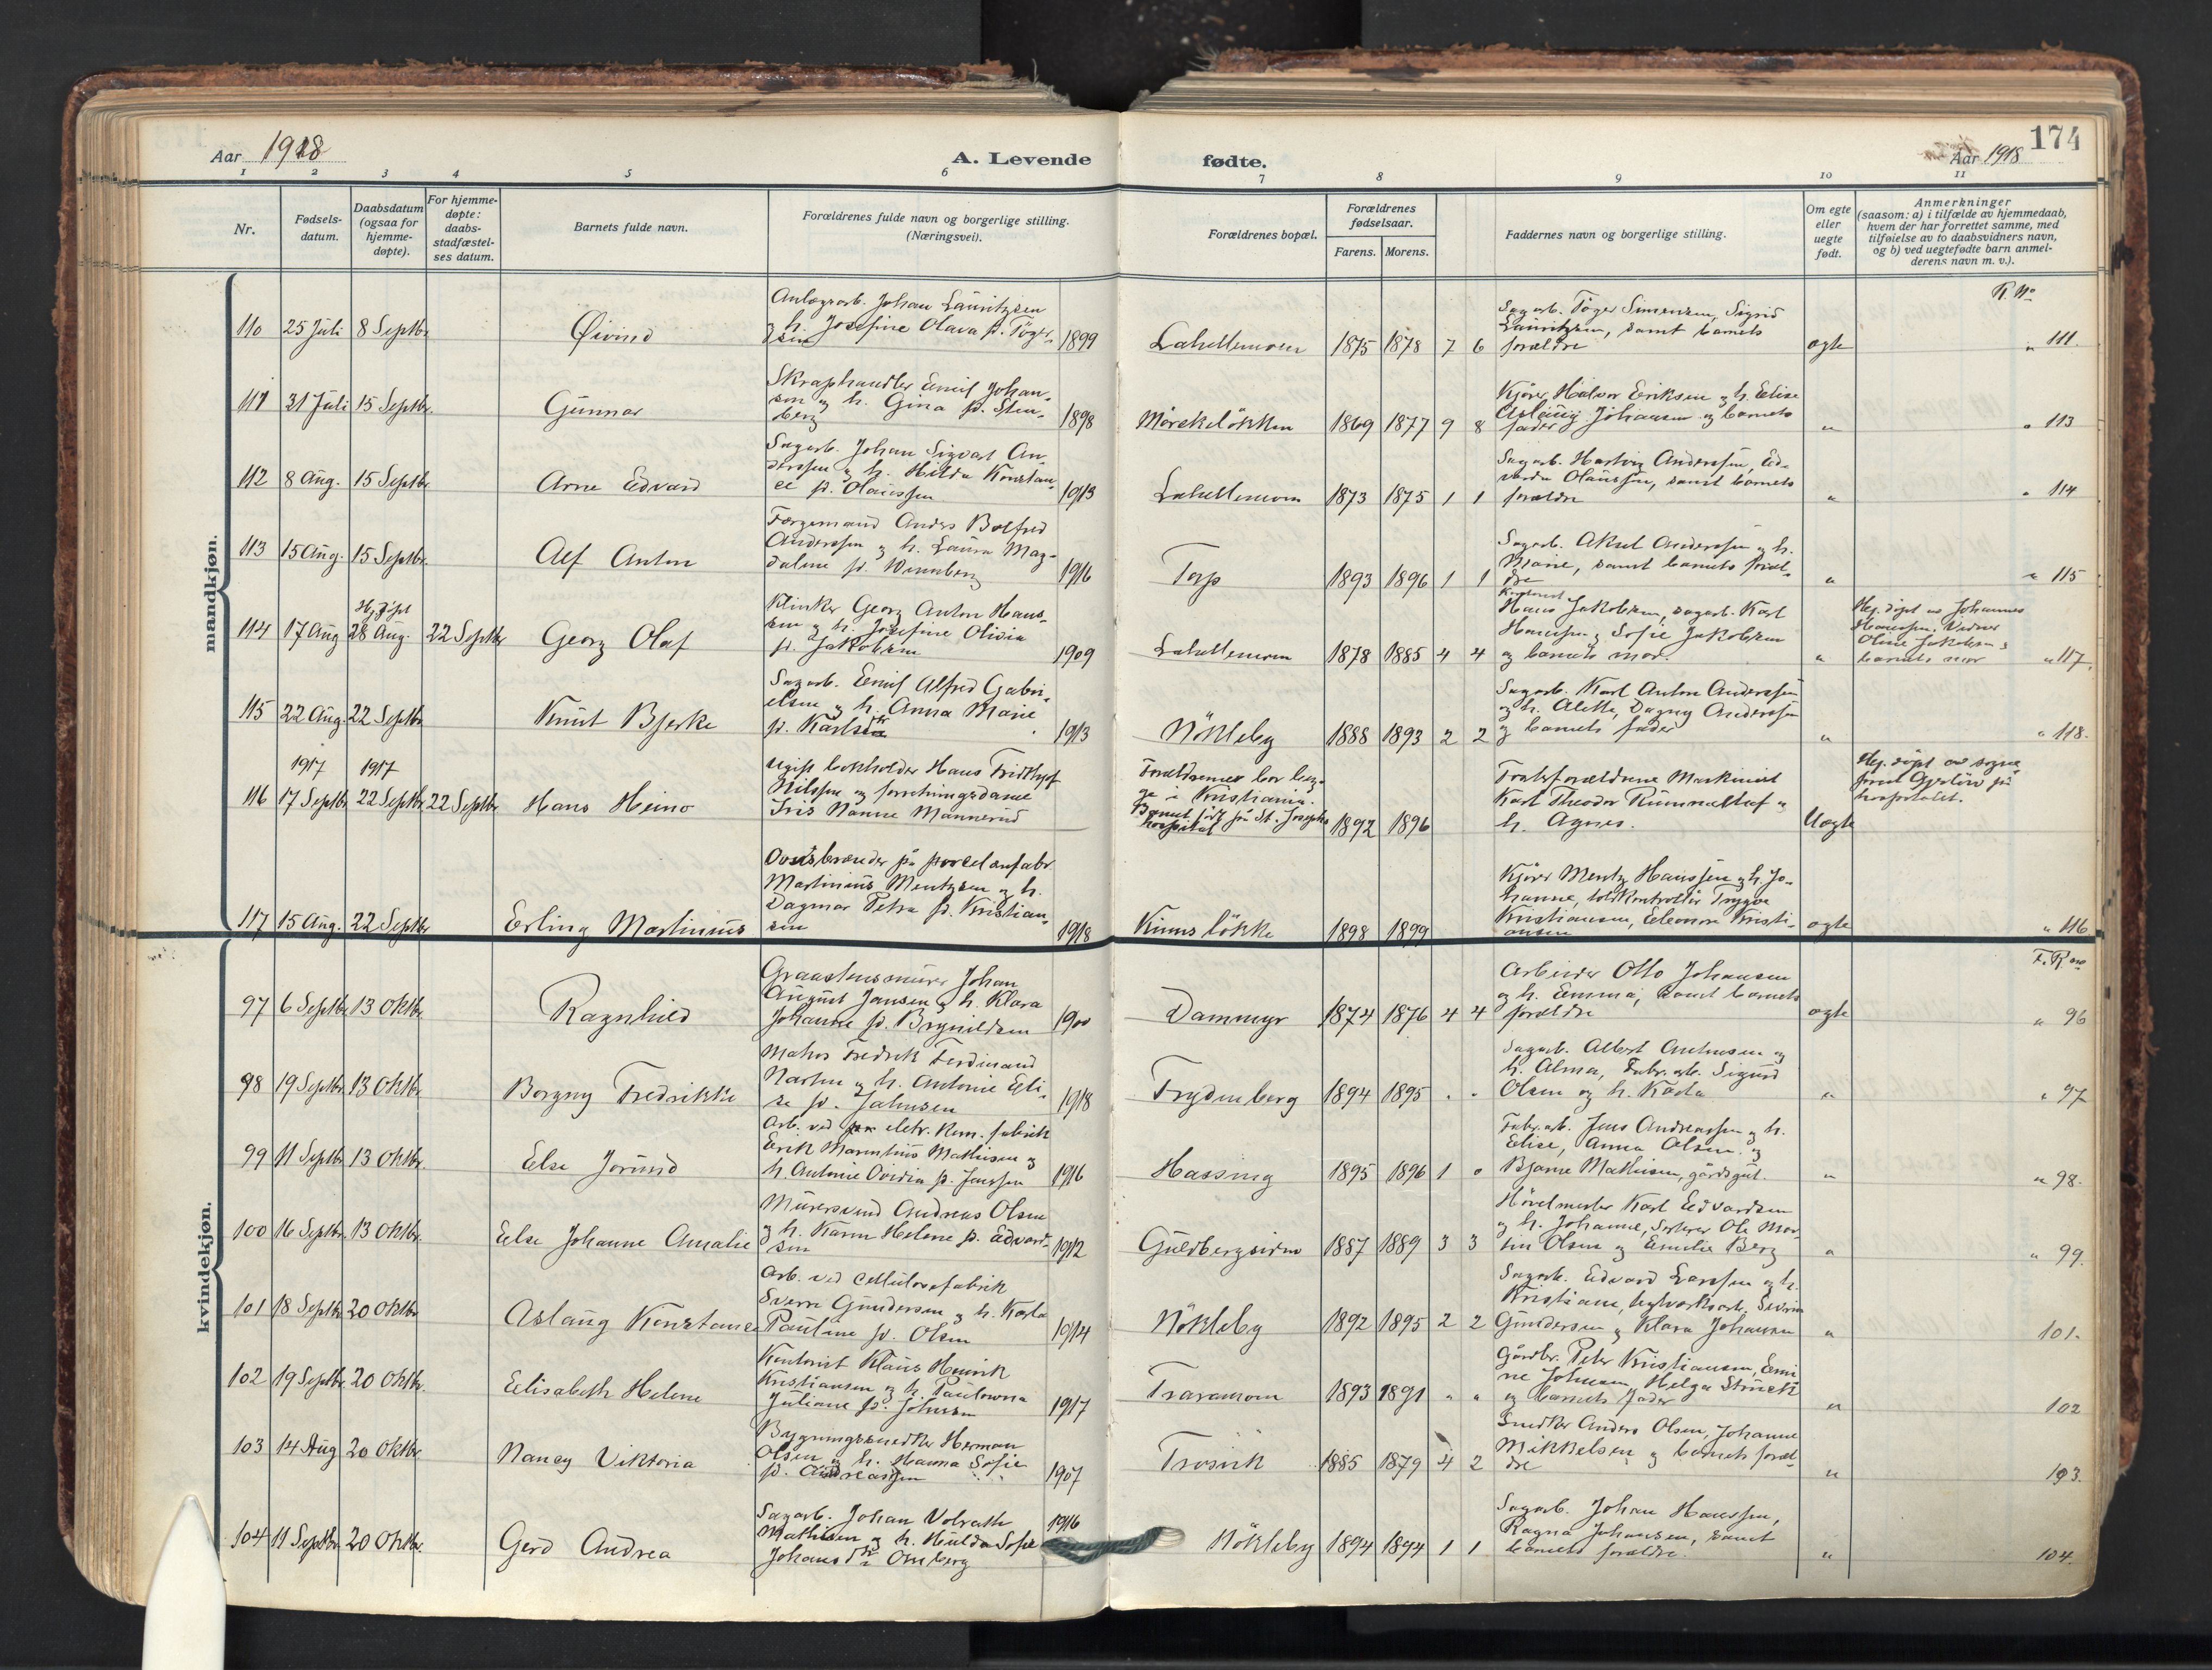 Aar 1918
A. Levende
fødte.
Aar 1918
174
1 2 3 4 5 6 7 8 9 10 11
Nr.
Fødsels-
datum.
Daabsdatum
(ogsaa for
hjemme-
døpte).
For hjemme-
døpte:
daabs-
stadfæstel-
ses datum.
Barnets fulde navn.
Forældrenes fulde navn og borgerlige stilling.
(Næringsvei).
Forældrenes bopæl.
Forældrenes
fødselsaar.
Farens. Morens.
Faddernes navn og borgerlige stilling.
Om egte
eller
uegte
født.
Anmerkninger
(saasom: a) i tilfælde av hjemmedaab,
hvem der har forrettet samme, med
tilføielse av to daabsvidners navn,
og b) ved uegtefødte barn anmel-
derens navn m. v.).
mandkjøn.
110 25 Juli 8 Septbr. Øivind
Johan Lauritzen
og h. Josefine Olava f. Tøger-
sen 1899
Lahellemoen 1875 1878 7 6
Sagarb. Tøger Simensen, Sigrid
Lauritzen, samt barnets
forældre
egte
" 111.
111 31 Juli 15 Septbr. Gunnar
Skraphandler Emil Johan-
sen og h. Gina f. Sten-
berg 1898
1869 1877 9 8
Kjører Halvor Eriksen og h. Elise
Aslaug Johansen og barnets
fader
"
" 113
112 8 Aug. 15 Septbr. Arne Edvard
Sagarb. Johan Sigvart An-
derssen og h. Hilda Konstan-
ce f. Olaussen 1913
Lahellemoen 1873 1875 1 1
Sagarb. Hartvig Anderssen, Ed-
varda Olaussen, samt barnets
forældre
"
" 114
113 15 Aug. 15 Septbr. Alf Anton
Færgemand Anders Botfred
Anderssen og h. Laura Mag-
dalene f. Wennberg 1916
Torp 1893 1896 1 1
Sagarb. Aksel Anderssen og h.
Marie, samt barnets foræl-
dre
"
" 115
114 17 Aug Hj. døpt 28 Aug. 22 Septbr Georg Olaf
Klinker Georg Anton Hans-
sen og h. Josefine Olivia
f. Jakobsen 1909
Lahellemoen 1878 1885 4 4
Hans Jakobsen, sagarb. Karl
Hanssen, Sofie Jakobsen
og barnets mor.
"
Hj. døpt av Johannes
Hanssen. Vidner
Oline Jakobsen,
barnets mor " 117.
115 22 Aug. 22 Septbr Knut Bjerke
Sagarb. Emil Alfred Gabri-
elsen og h. Anna Marie
f. Karlsdtr 1913
Nökleby 1888 1893 2 2
Sagarb. Karl Anton Anderssen
og h. Alette, Dagny Anderssen
og barnets fader
"
" 118.
1917 1917
116 17 Septbr 22 Septbr 22 Septbr. Hans Heino
Ugift bokholder Hans Fridthjof
Nilssen og forretningsdame
Iris Nanne Mannerud
Forældrenes bor beg-
ge i Kristiania.
Barnet født på St. Josephs
hospital
1892 1896
Fosterforældrene Maskinist
Karl Theodor og
h. Agnes.
Uegte
Hj. døpt av sogne
på
hospitalet.
117 15 Aug. 22 Septbr Erling Martinius
Ovnsbrænder på porcelænfabr.
Martinius Mentzsen og h.
Dagmar Petra f. Kristian-
sen 1918
Kinnslökke 1898 1899
Kjører Mentz Hanssen og h. Jo-
hanne, toldkontrollør Trygve
Kristiansen, Eleonore Kristi-
ansen
egte
" 116
kvindekjøn.
97 6 Septbr 13 Oktbr. Ragnhild
Graastensmurer Johan
August Jansen og h. Klara
Johanne f. Brynildsen 1900
Dammyr 1874 1876 4 4
Arbeider Otto Johansen
og h. Emma, samt barnets
forældre
egte
" 96
98 19 Septbr. 13 Oktbr. Borgny Fredrikke
Fredrik Ferdinand
og h. Antonie Eli-
se f. Jahnsen 1918
Frydenberg 1894 1895 " "
Sagarb. Albert Antonsen og
h. Alma, Fabr. arb. Sigurd
Olsen og h. Karla
"
" 97
99 11 Septbr 13 Oktbr. Else Jorund
Arb. ved eletr. kem. fabrik
Erik Marentius Mathisen og
h. Antonie Ovidia f. Jenssen 1916
Hassing 1895 1896 1 0
Fabr. arb. Jens Andreassen og h.
Elise, Anna Olsen og
Bjarne Mathisen, gårdsgut.
"
" 98.
100 16 Septbr. 13 Oktbr. Else Johanne Amalie
Murersvend Andreas Olsen
og h. Karen Helene f. Edvard-
sen 1912
Guldbergsiden 1887 1889 3 3
Hövelmester Karl Edvardsen
og h. Johanne, Ole Mar-
tin Olsen og Emilie Berg
"
" 99.
101 18 Septbr 20 Oktbr Aslaug Konstance
Arb. ved cellulosefabrik
Sverre Gundersen og h. Karla
Pauline f. Olsen 1914
Nökleby 1892 1895 2 2
Sagarb. Edvard Larssen og h.
Kristiane, Severin
Gundersen og Klara Johansen
"
101.
102 19 Septbr 20 Oktbr. Elisabeth Helene
Kontorist Klaus Henrik
Kristiansen og h. Paulowna
Juliane f. Johnsen 1917
Traramoen 1893 1891 " "
Gårdbr. Peter Kristiansen, Emi-
ne Johnsen, Helga
og barnets fader
"
102
103 14 Aug 20 Oktbr Nancy Viktoria
Bygningssnedker Herman
Olsen og h. Hanna Sofie
f. Andreassen 1907
Trosvik 1885 1879 4 2
Snedker Anders Olsen, Johanne
Mikkelsen og barnets foræl-
dre
"
103.
104 11 Septbr 20 Oktbr. Gerd Andrea
Sagarb. Johan Volrath
Mathisen og h. Hulda Sofie
Johansdtr Omberg 1916
Nökleby 1894 1894 1 1
Sagarb. Johan Hanssen,
Ragna Johansen, samt
barnets forældre.
"
104.